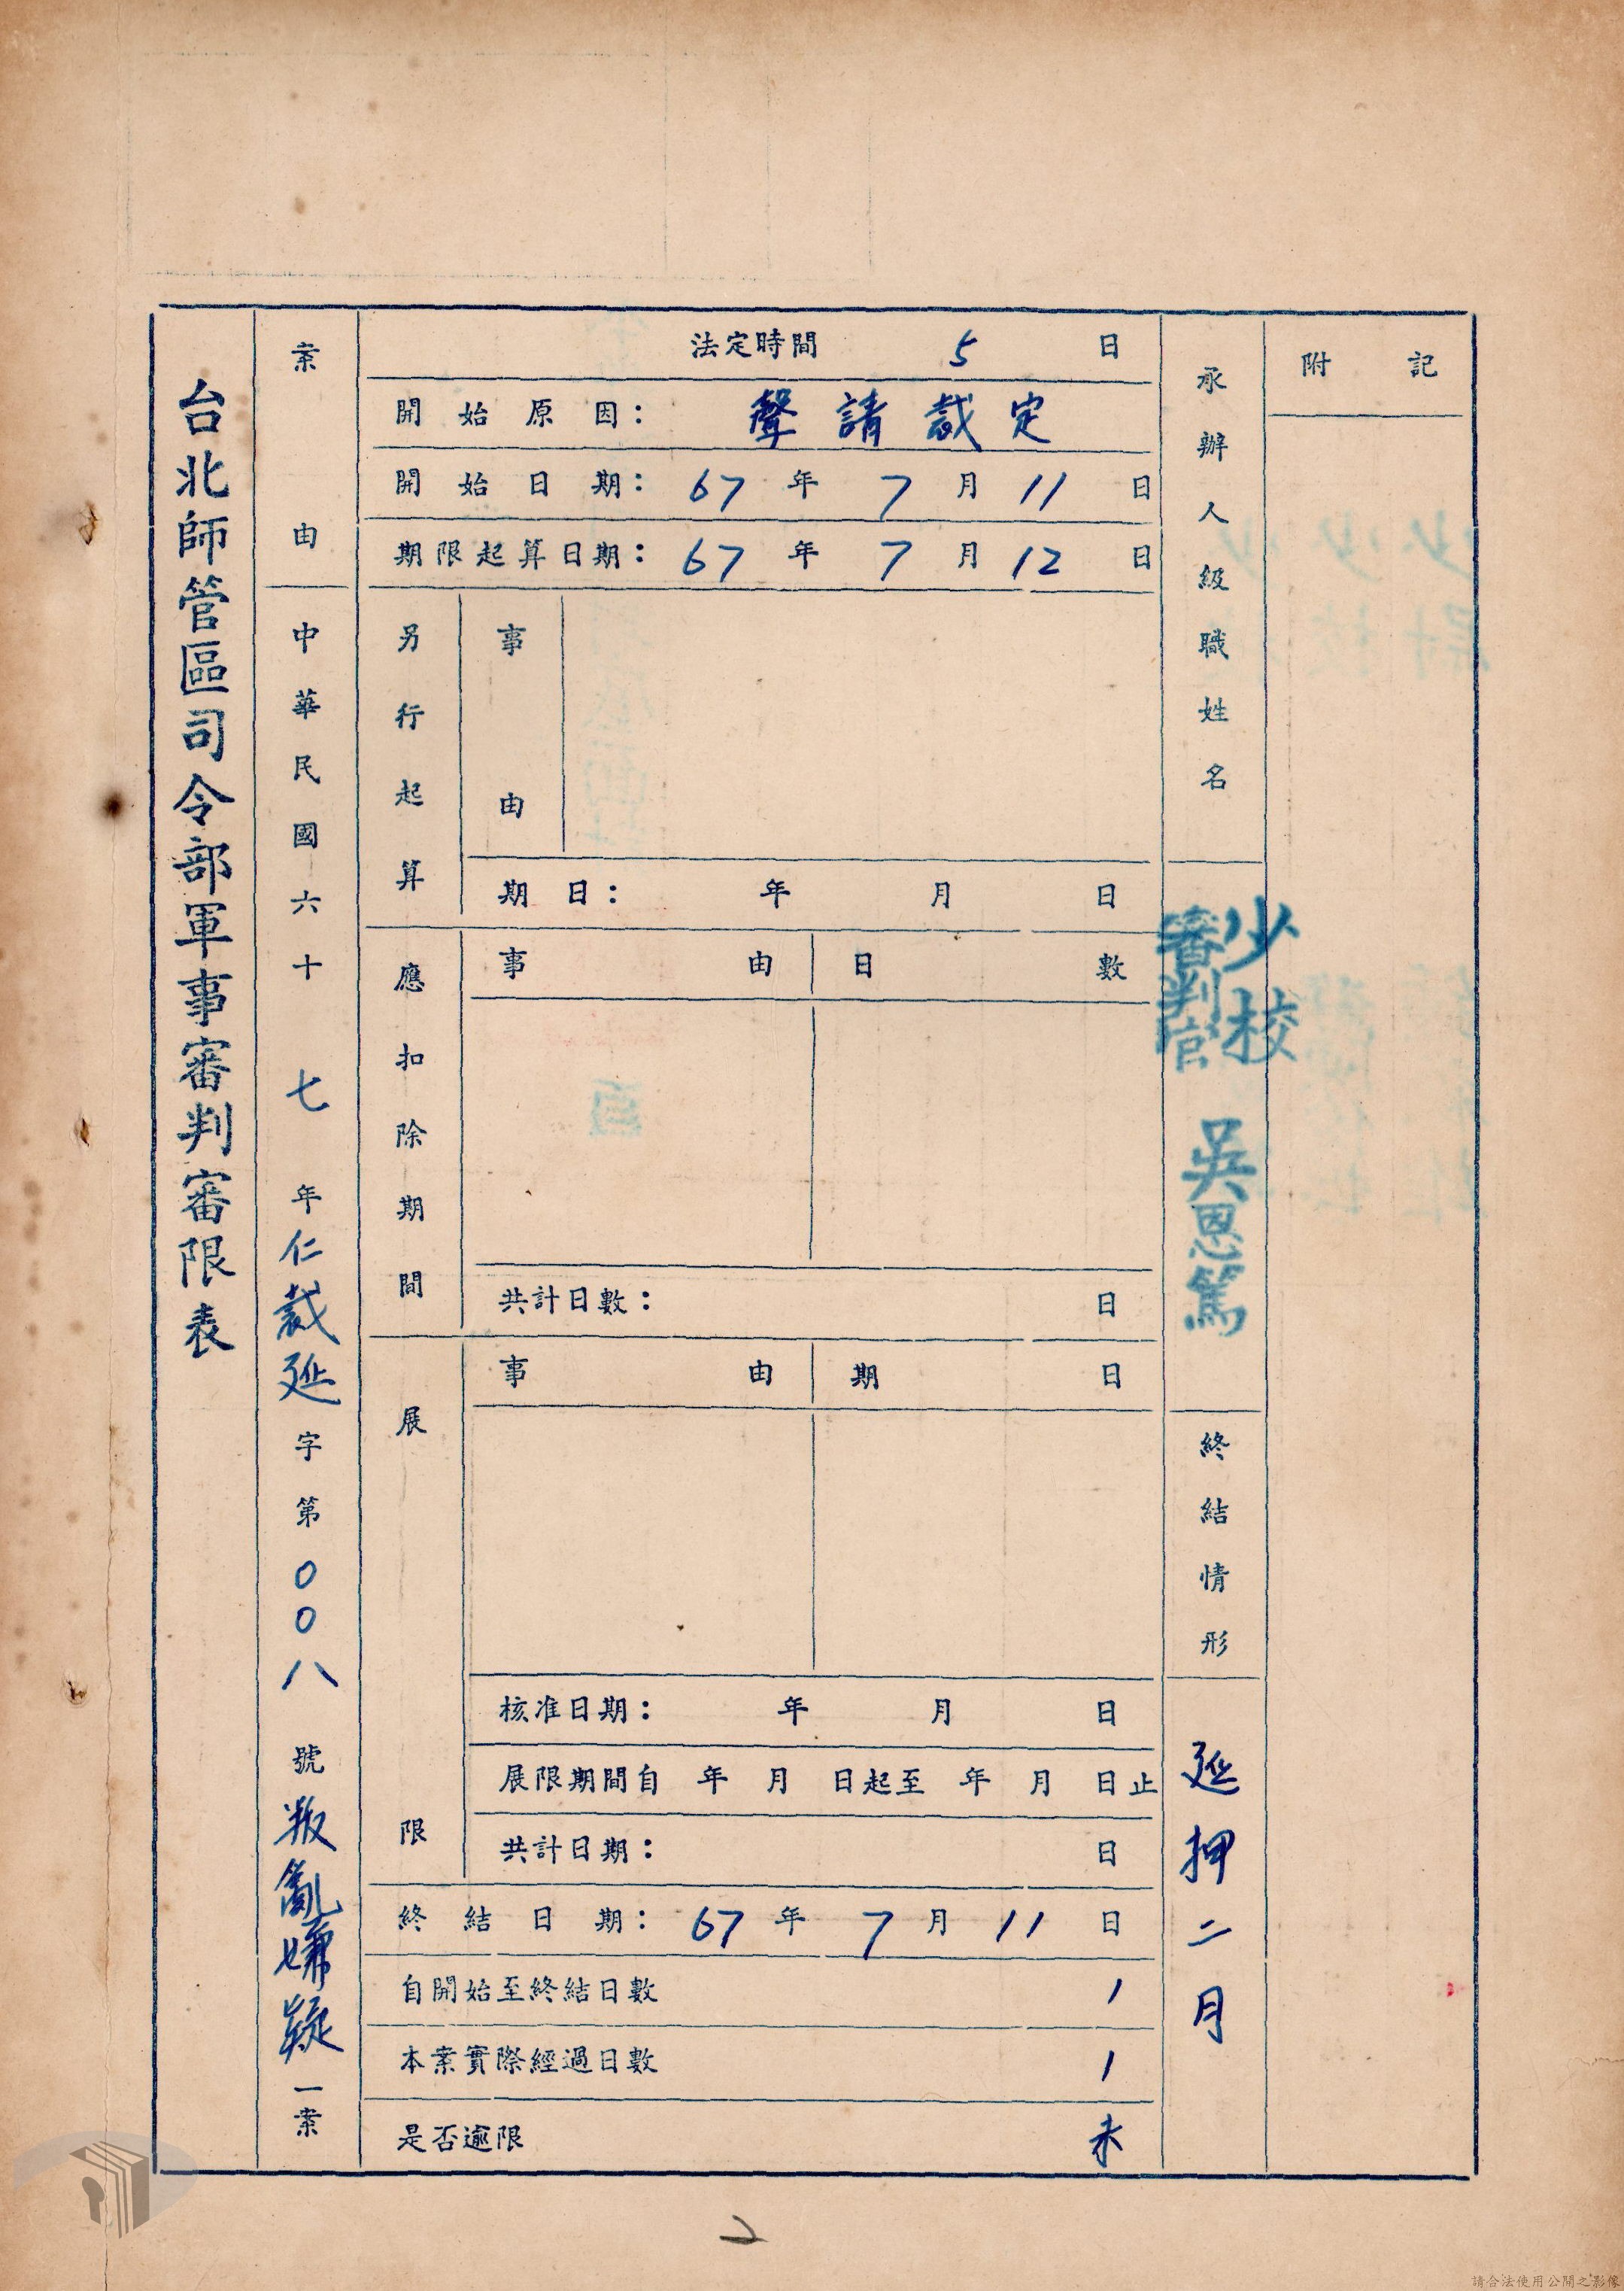 台北師管區司令部軍事審判審限表
案由
中華民國六十七年仁裁延字第００八號叛亂嫌疑一案
法定時間 5 日
開始原因：聲請裁定
開始日期：67年7月11日
期限起算日期：67年7月12日
另行起算
事由
期日： 年 月 日
應扣除期間
事由 日數
共計日數： 日
展限
事由 期日
核准日期： 年 月 日
展限期間自 年 月 日起至 年 月 日止
共計日期： 日
終結日期：67年7月11日
自開始至終結日數 1
本案實際經過日數 1
是否逾限 未
承辦人級職姓名
少校
審判官
吳恩篤
終結情形
延押二月
附記
2
請合法使用公開之影像